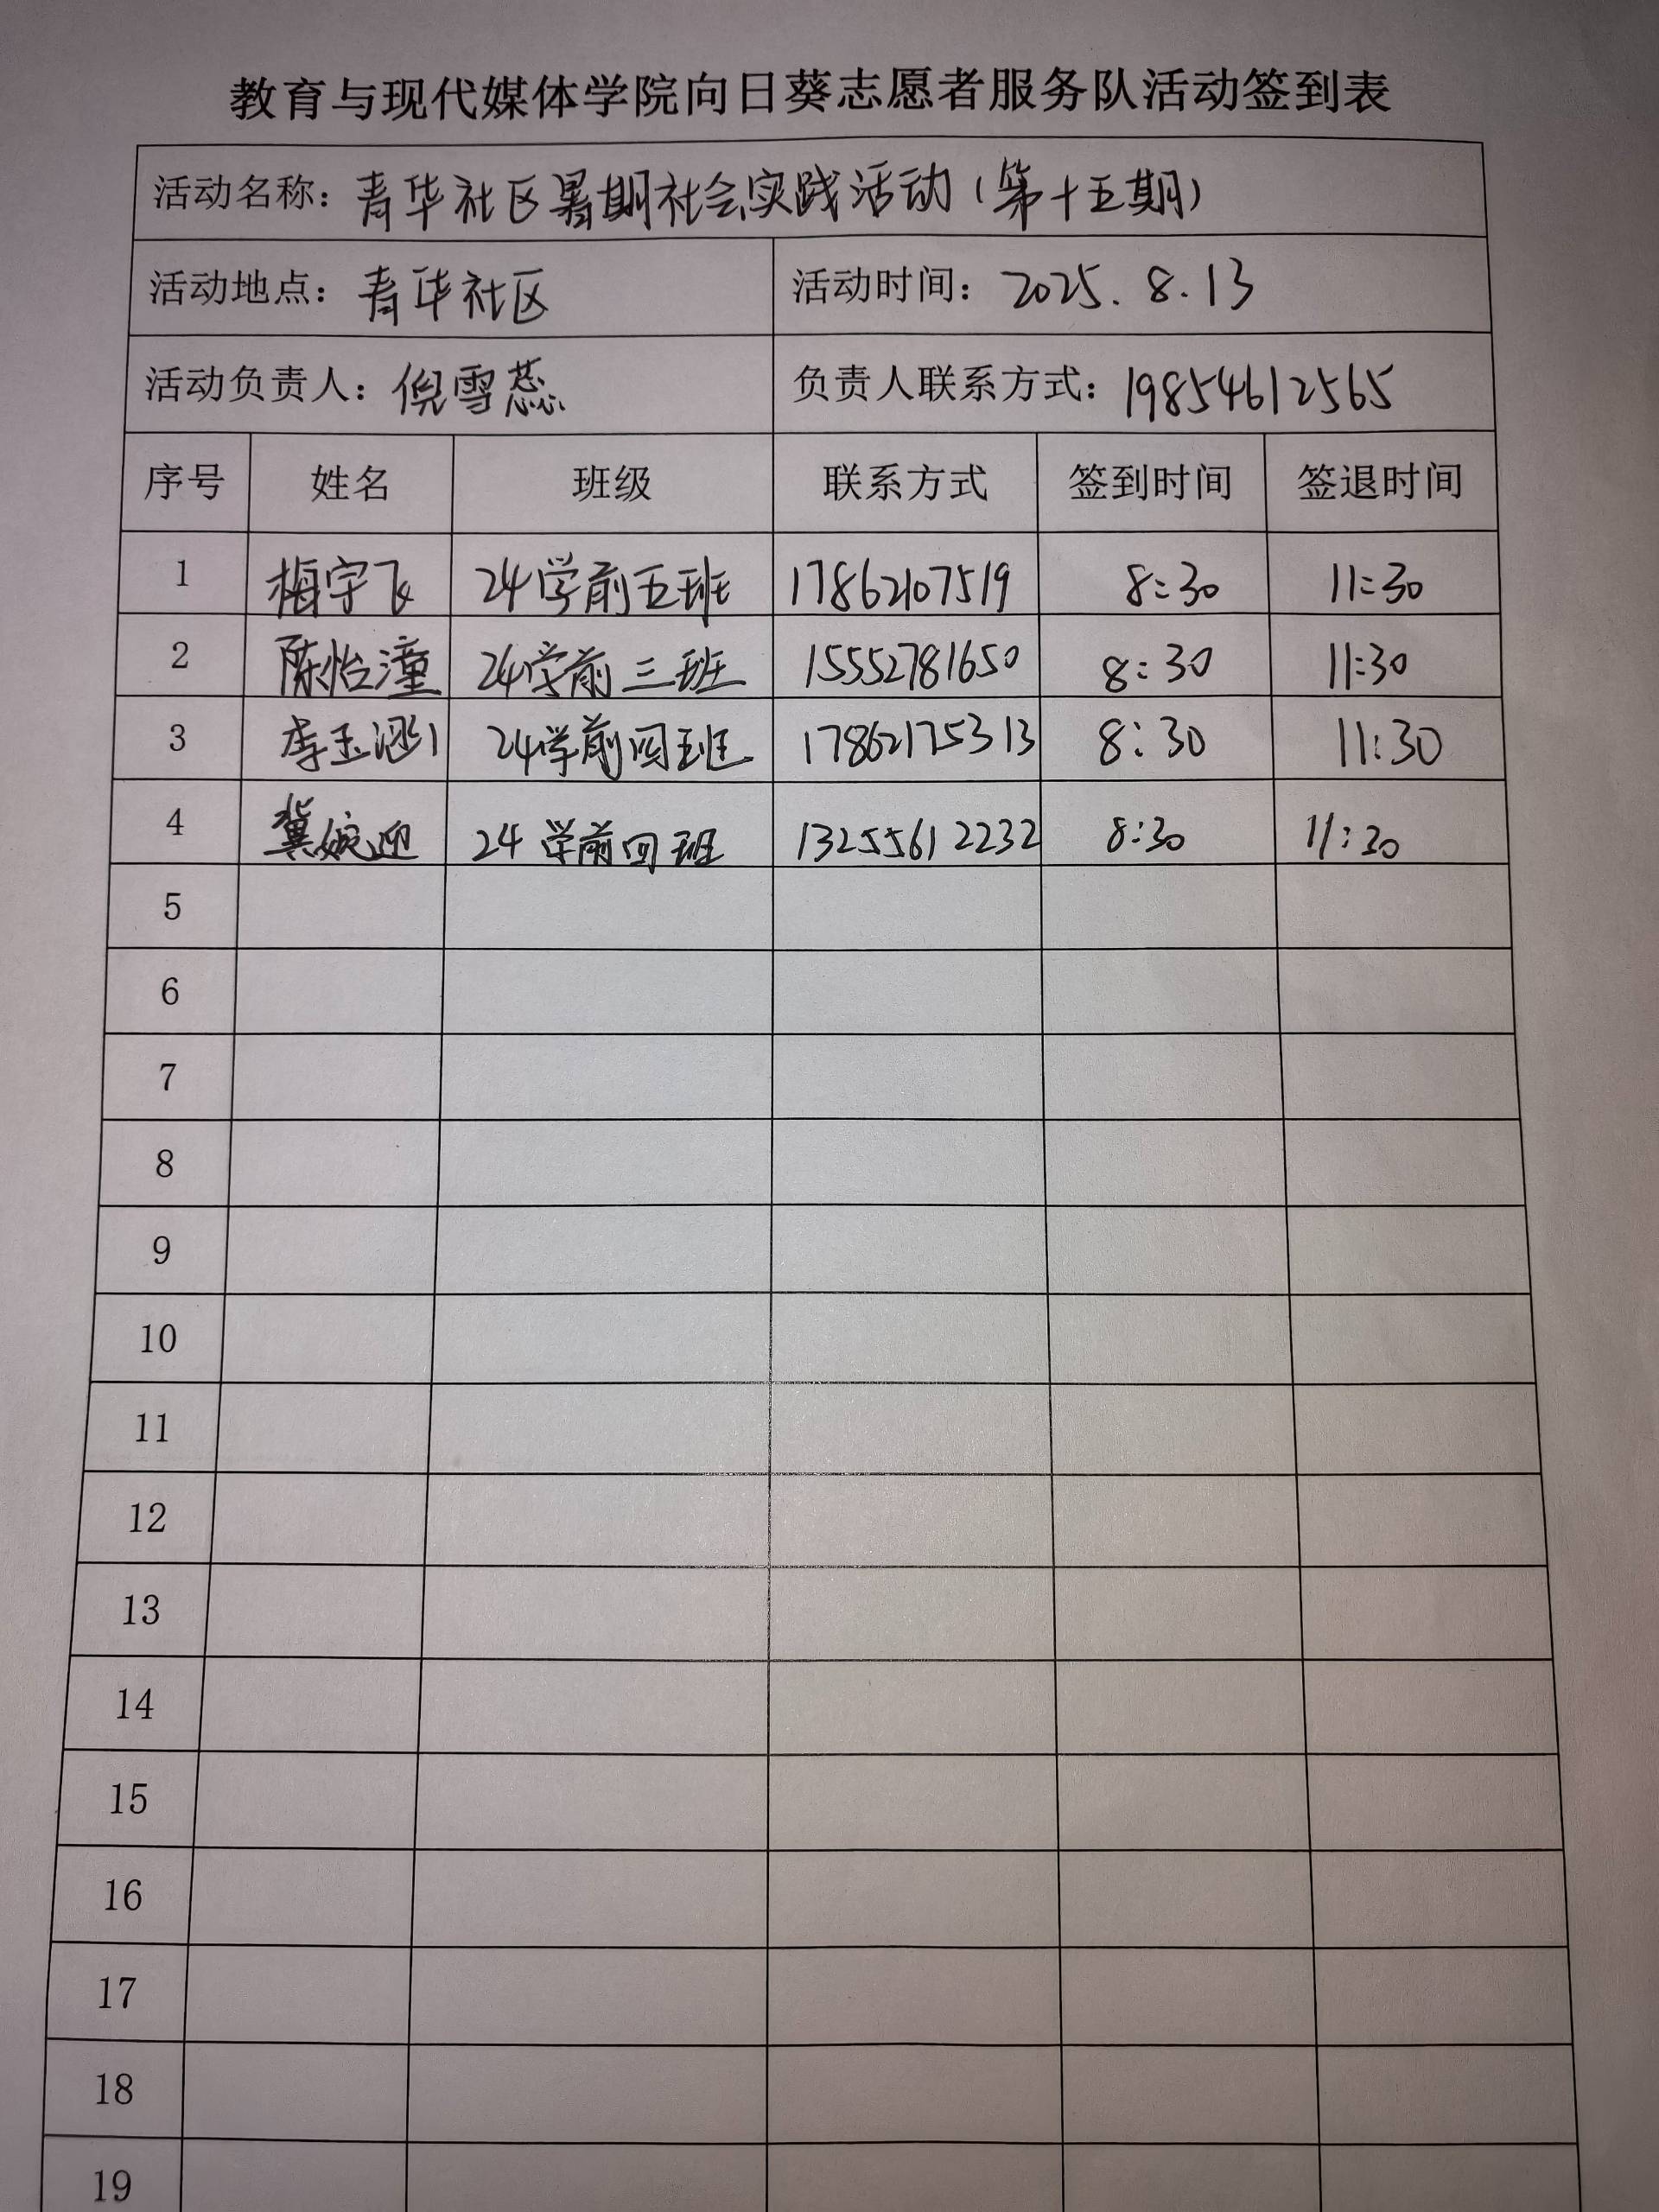 教育与现代媒体学院向日葵志愿者服务队活动签到表
活动名称：青华社区暑期社会实践活动（第十五期）
活动地点：青华社区 活动时间：2025.8.13
活动负责人：倪雪蕊 负责人联系方式：19854612565
序号 姓名 班级 联系方式 签到时间 签退时间
1 梅宇飞 24学前五班 17862107519 8:30 11:30
2 陈怡潼 24学前三班 15552781650 8:30 11:30
3 李玉 24学前四班 17862175313 8:30 11:30
4 冀婉迎 24学前四班 13255612232 8:30 11:30
5
6
7
8
9
10
11
12
13
14
15
16
17
18
19